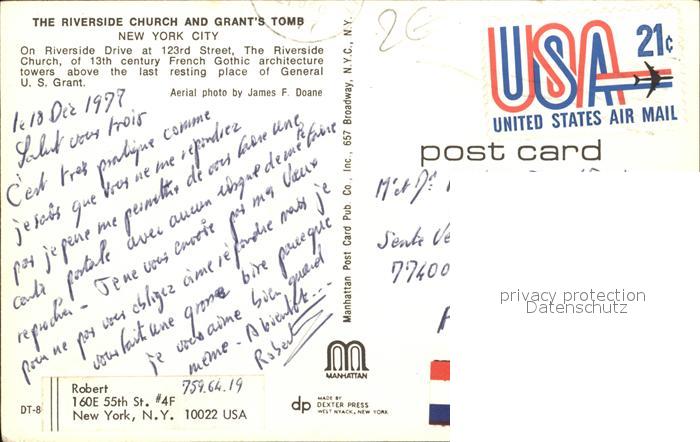 THE RIVERSIDE CHURCH AND GRANT'S TOMB
NEW YORK CITY
On Riverside Drive at 123rd Street, The Riverside
Church, of 13th century French Gothic architecture
towers above the last resting place of General
U. S. Grant.
Aerial photo by James F. Doane
le 18 Déc 1977
Salut vous trois
C'est très pratique comme
je sais que vous ne me répondrez
pas je peux me permettre de vous faire une
carte postale avec aucun risque de me faire
reprocher - Je ne vous envoie pas mes vœux
pour ne pas vous obliger à me répondre mais je
vous fait une grosse bise parce que
je vous aime bien quand
même - A bientôt...
Robert
Robert 759.64.19
160E 55th St. #4F
New York, N.Y. 10022 USA
DT-8
Manhattan Post Card Pub. Co., Inc., 657 Broadway, N.Y.C., N.Y.
MANHATTAN
dp
MADE BY
DEXTER PRESS
WEST NYACK, NEW YORK
2€
USA 21c
UNITED STATES AIR MAIL
post card
M et Me
Sente
77400
privacy protection
Datenschutz